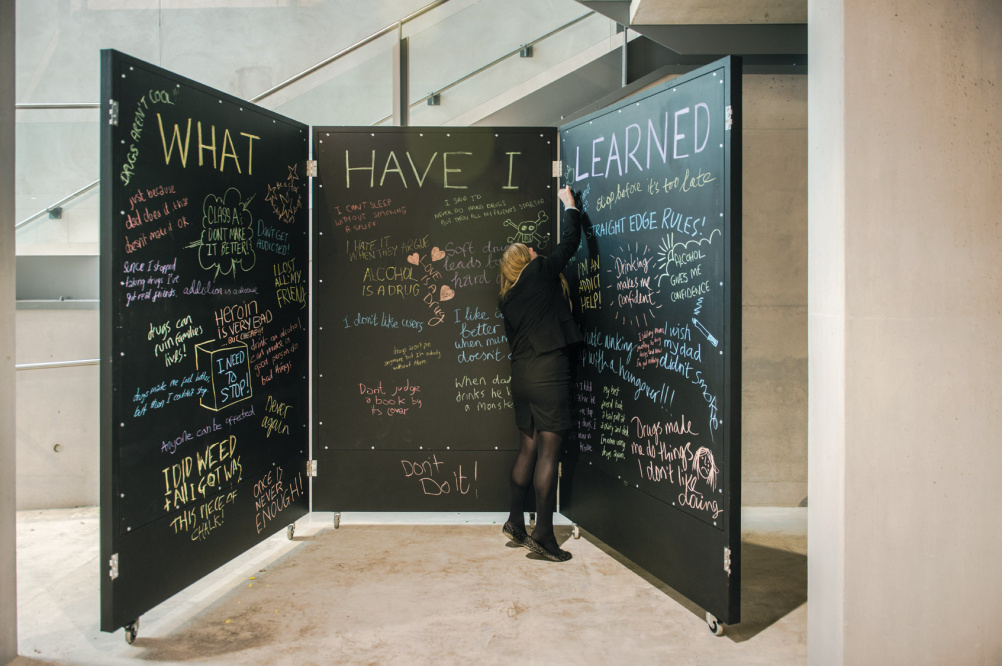 "DRUGS AREN'T COOL"
WHAT
just because
dad does it that
doesn't make it OK
CLASS A'S
DON'T MAKE
IT BETTER!
DON'T GET
ADDICTED!
SINCE I STOPPED
taking drugs I've
got real friends.
addiction is a disease
I LOST
ALL MY
FRIENDS
drugs can
ruin families
lives!
HEROIN
IS VERY BAD
I NEED
TO
STOP!
drink an alcohol
can make a
good person do
bad things
drugs make me feel better
but then I can't stop
Never
again
Anyone can be affected
I DID WEED
+ All I GOT WAS
THIS PIECE OF
CHALK!
ONCE IS
NEVER
ENOUGH!
HAVE I
I CAN'T SLEEP
WITHOUT SMOKING
A SPLIFF
I SAID I'D
NEVER DO HARD DRUGS
BUT THEN ALL MY FRIENDS STARTED
I HATE IT
WHEN THEY ARGUE
ALCOHOL
IS A DRUG
LOVE
IS A
DRUG
Soft drugs
leads to
hard
I don't like users
I like
better
when mum
doesn't
without them
Dont judge
a book by
its cover
When dad
drinks he
a monster
Don't
Do it!
LEARNED
Stop before it's too late
STRAIGHT EDGE RULES!
I'M AN
ADDICT
HELP!
Drinking
makes me
confident
ALCOHOL
GIVES ME
CONFIDENCE
hate waking
up with a hangover!!!
I wish
my dad
didn't smoke
Drugs made
me do things
I don't like
doing